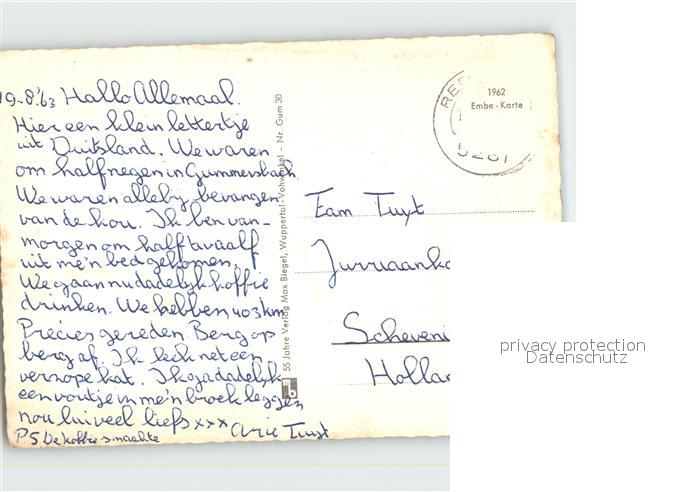 19-8-'63 Hallo Allemaal.
Hier een klein lettertje
uit Duitsland. We waren
om half negen in Gummersbach
We waren allebij bevangen
van de kou. Ik ben van-
morgen om half twaalf
uit me'n bed gekomen.
We gaan nu dadelijk koffie
drinken. We hebben 403 km
Precies gereden Berg op
berg af. Ik lijk net een
verzope kat. Ik ga dadelijk
een in me'n broek leggen
nou lui veel liefs xxx Arie Tuyt
PS De koffie smaakte
55 Jahre Verlag Max Biegel, Wuppertal-Vohwinkel - Nr. Gum 30
1962
Embe-Karte
5281
Fam Tuyt
Jurriaanko
Scheveni
Hollan
privacy protection
Datenschutz